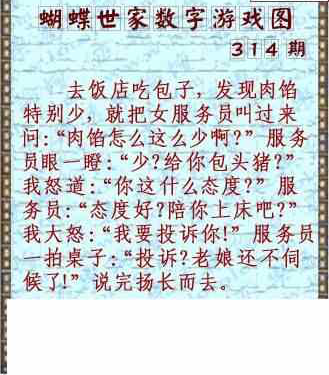 蝴蝶世家数字游戏图
314期
去饭店吃包子，发现肉馅
特别少，就把女服务员叫过来
问：“肉馅怎么这么少啊？”服务
员眼一瞪：“少？给你包头猪？”
我怒道：“你这什么态度？”服
务员：“态度好？陪你上床吧？”
我大怒：“我要投诉你！”服务员
一拍桌子：“投诉？老娘还不伺
候了！”说完扬长而去。